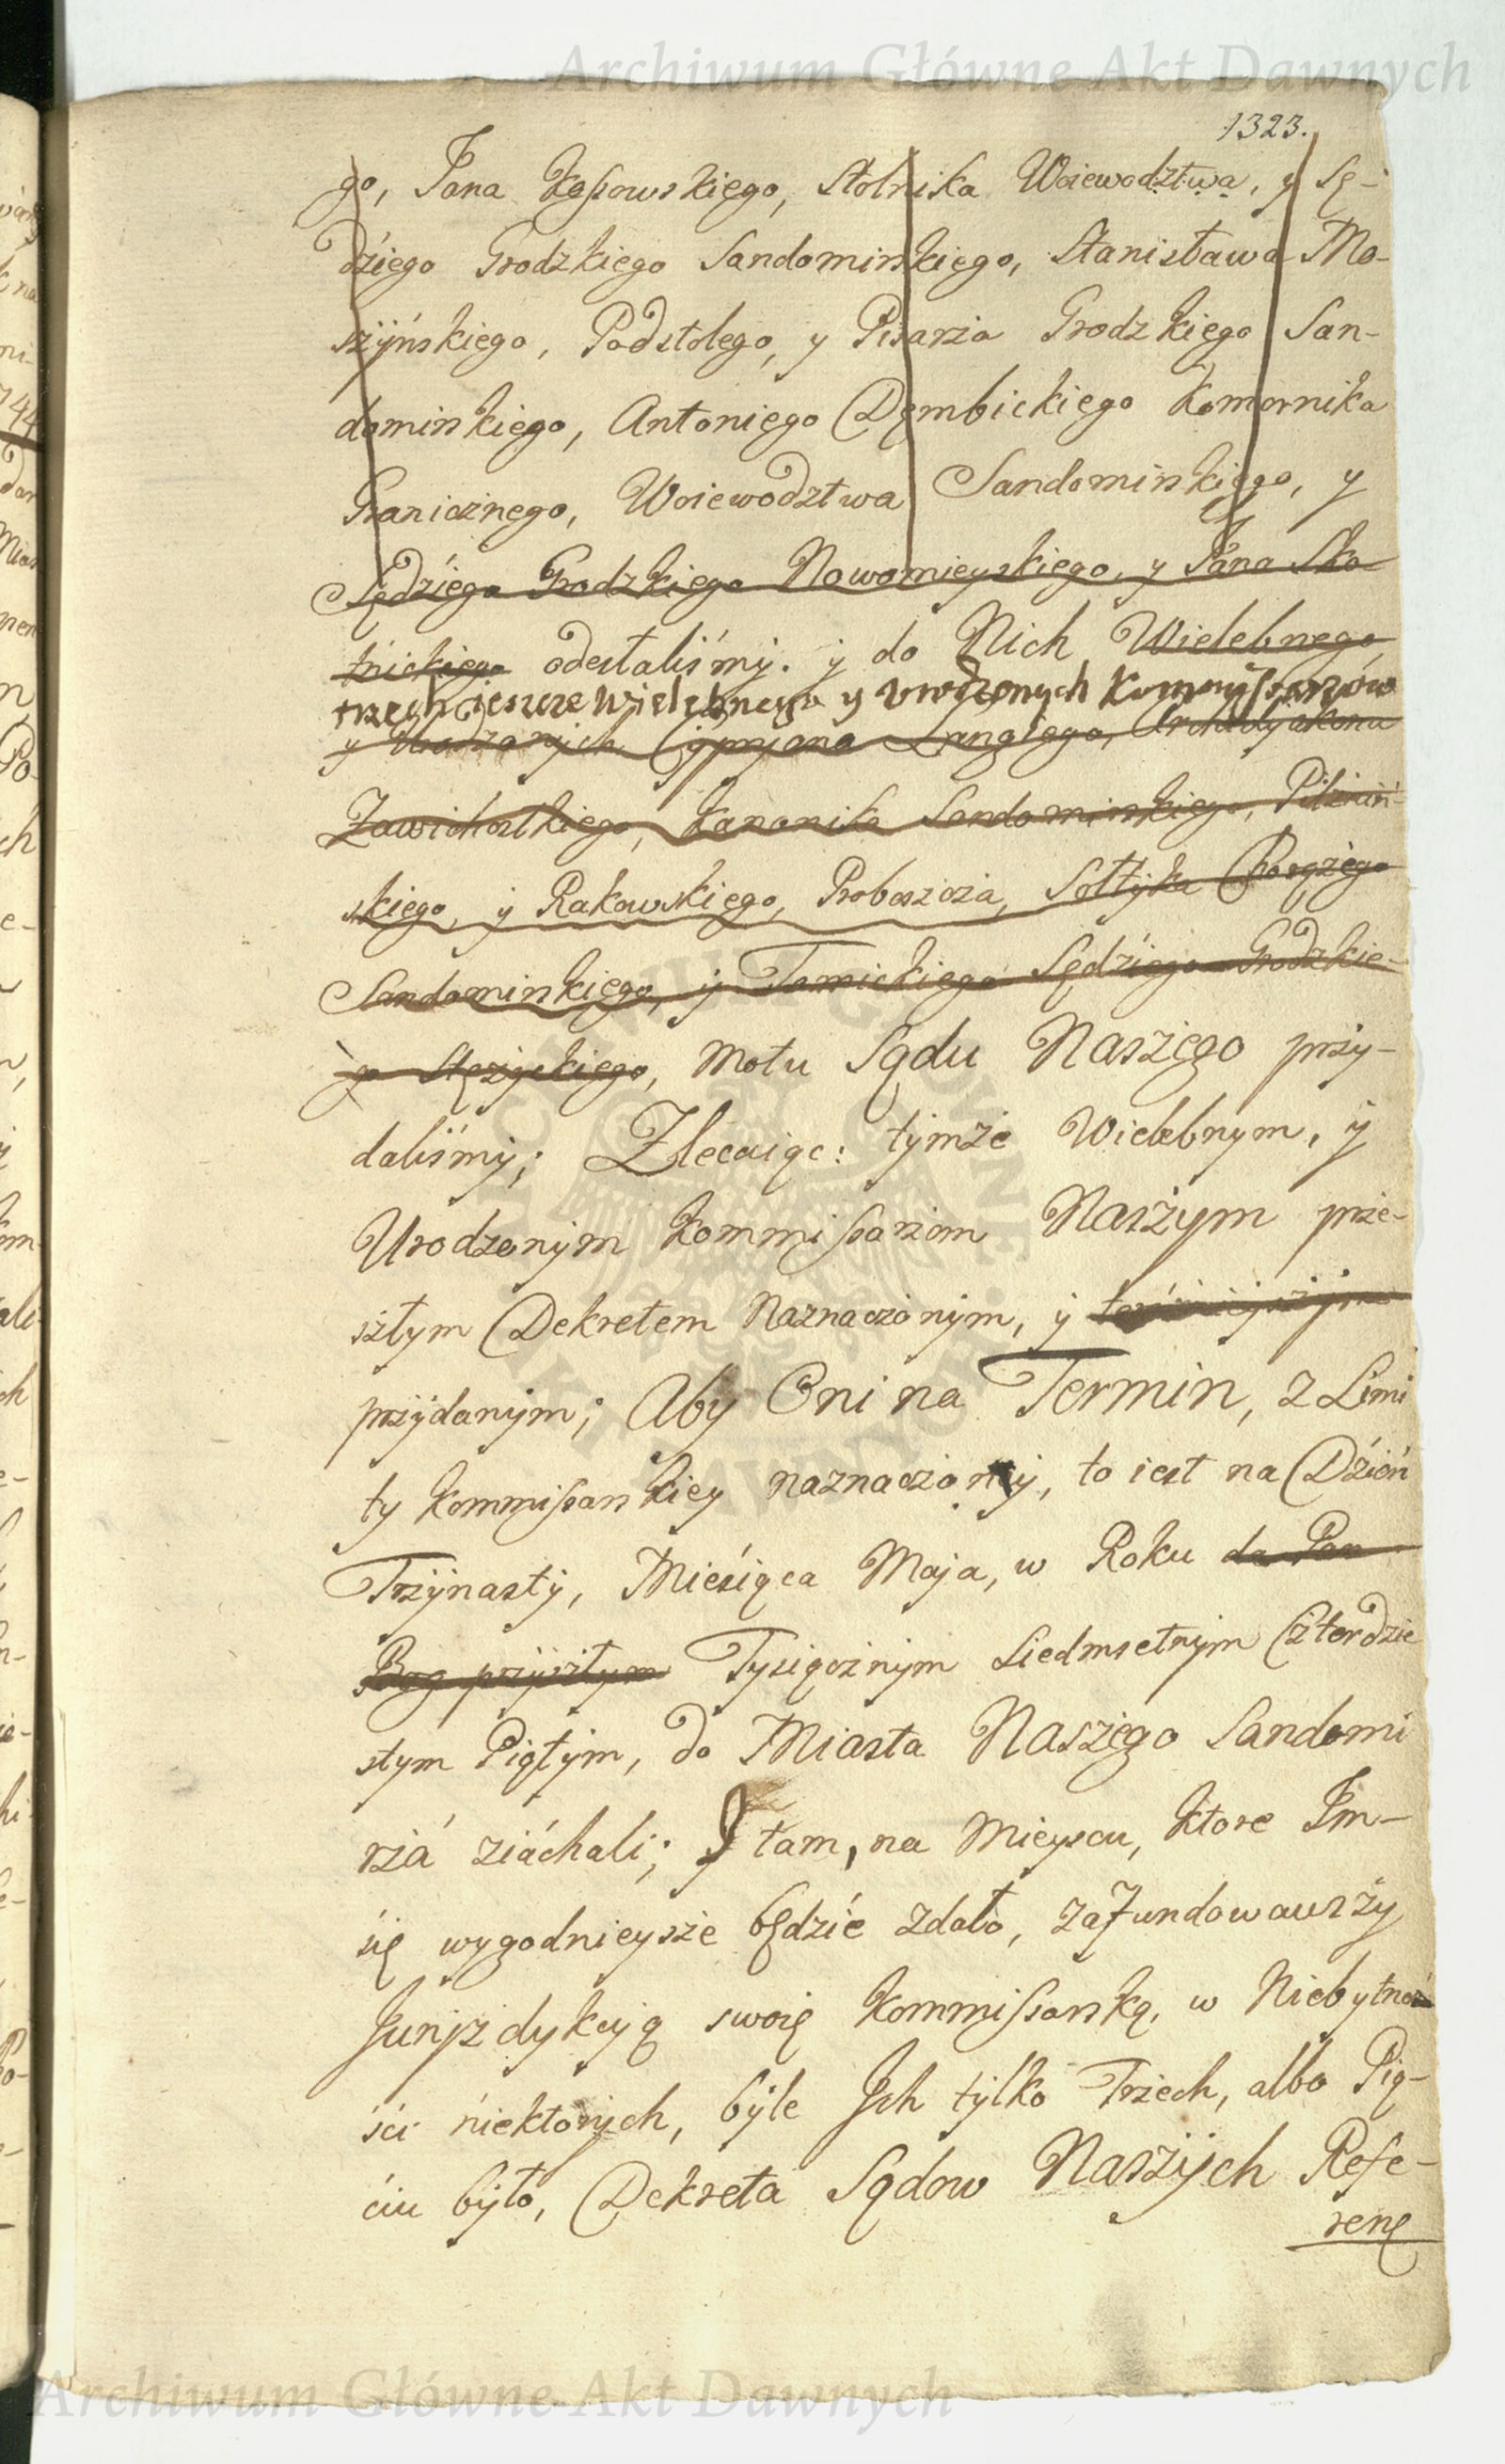 Archiwum Główne Akt Dawnych
1323.
go, Jana Kąssowskiego, Stolnika Woiewodztwa, y Sę-
dźiego Grodzkiego Sandomirskiego, Stanisława Mo-
szÿńskiego, Podstolego, y Pisarza Grodzkiego San-
domirskiego, Antoniego Dęmbickiego Komornika
Granicznego, Woiewodztwa Sandomirskiego, y
Sędźiego Grodzkiego Nowomieyskiego, y Jana Sko-
tnickiego odesłaliśmÿ. y do Nich Wielebnego
trzech ieszcze Wielebnego y Urodzonych Kommissarzów
y Urodzonÿch Cÿpryana Langiego, Archidÿakona
Zawichostkiego, Kanonika Sandomirskiego, Pilznin-
skiego, ÿ Rakowskiego, Proboszcza, Sołtÿka Chorążego
Sandomirskiego, ÿ Tomickiego Sędźiego Grodzkie-
go Stężyckiego, motu Sądu Naszego przÿ-
daliśmÿ; Zlecaiąc: tymże Wielebnym, ÿ
Urodzonÿm Kommissarzom Naszÿm prze-
szłym Dekretem Naznaczonÿm, ÿ
przÿdanÿm; Aby Oni na Termin, z Limi
ty Kommissarskiey naznaczonÿ, to iest na Dźień
Trzÿnastÿ, Mieśiąca Maja, w Roku da Pan
Bog przÿszłym Tysiącznÿm Siedmsetnÿm Czterdzie
stym Piątÿm, do Miasta Naszego Sandomi
rzá ziáchali; Y tam, na Mieyscu, ktore Jm-
śię wygodnieysze będźie zdało, zafundowawszy
Jurÿzdykcyją swoię Kommissarską, w Niebytno-
śći niektorÿch, bÿle Jch tÿlko Trzech, albo Pią-
ćiu bÿło, Dekreta Sądow Naszÿch Refe-
renę
Archiwum Główne Akt Dawnych